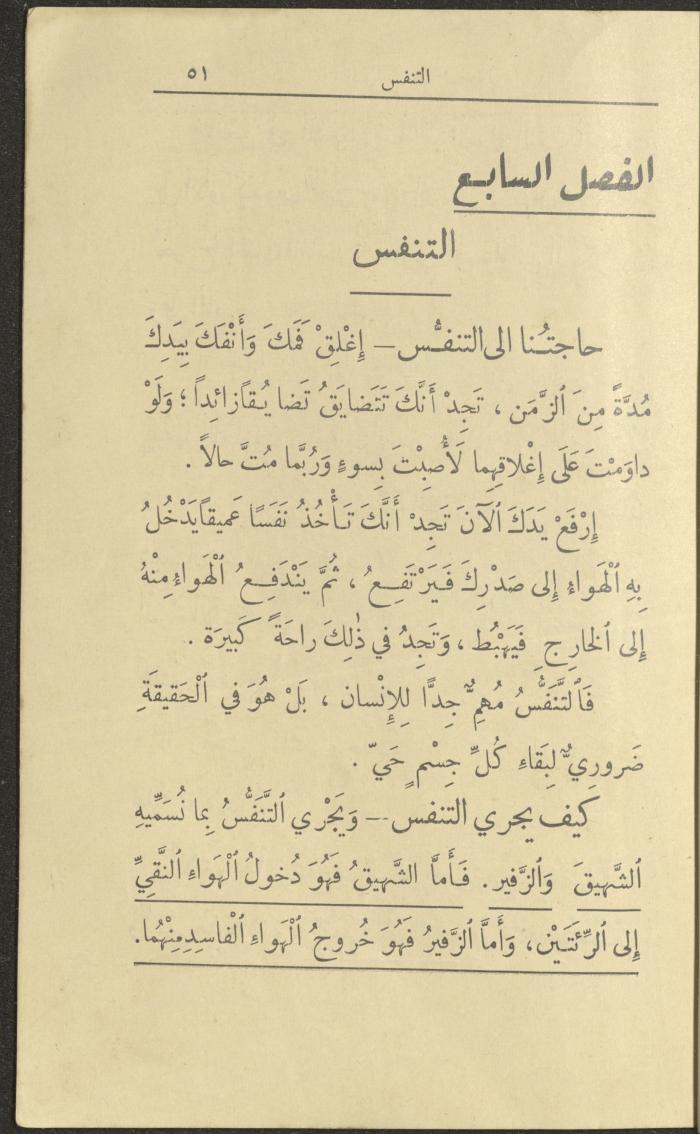 التنفس ٥١
الفصل السابع
التنفس
حاجتُنا الى التنفُّس — إِغْلِقْ فَمَكَ وَأَنْفَكَ بِيَدِكَ
مُدَّةً مِنَ ٱلزَّمَن ، تَجِدْ أَنَّكَ تَتَضايَقُ تَضايُقاً زائِداً ؛ وَلَوْ
داوَمْتَ عَلَى إِغْلاقِهِما لَأُصِبْتَ بِسوءٍ وَرُبَّما مُتَّ حالاً .
إِرْفَعْ يَدَكَ ٱلآنَ تَجِدْ أَنَّكَ تَأْخُذُ نَفَسًا عَميقاً يَدْخُلُ
بِهِ ٱلْهَواءُ إِلى صَدْرِكَ فَيَرْتَفِعُ ، ثُمَّ يَنْدَفِعُ ٱلْهَواءُ مِنْهُ
إِلى ٱلخارِجِ فَيَهْبُط ، وَتَجِدُ في ذٰلِكَ راحَةً كَبيرَة .
فَٱلتَّنَفُّسُ مُهِمٌّ جِدًّا لِلإِنْسان ، بَلْ هُوَ في ٱلْحَقيقَةِ
ضَرورِيٌّ لِبَقاءِ كُلِّ جِسْمٍ حَيّ .
كيف يجري التنفس — وَيَجْري ٱلتَّنَفُّسُ بِما نُسَمِّيهِ
ٱلشَّهيقَ وَٱلزَّفير . فَأَمَّا الشَّهيقُ فَهُوَ دُخولُ ٱلْهَواءِ ٱلنَّقِيِّ
إِلى ٱلرِّئَتَيْنِ ، وَأَمَّا ٱلزَّفيرُ فَهُوَ خُروجُ ٱلْهَواءِ ٱلْفاسِدِ مِنْهُما .